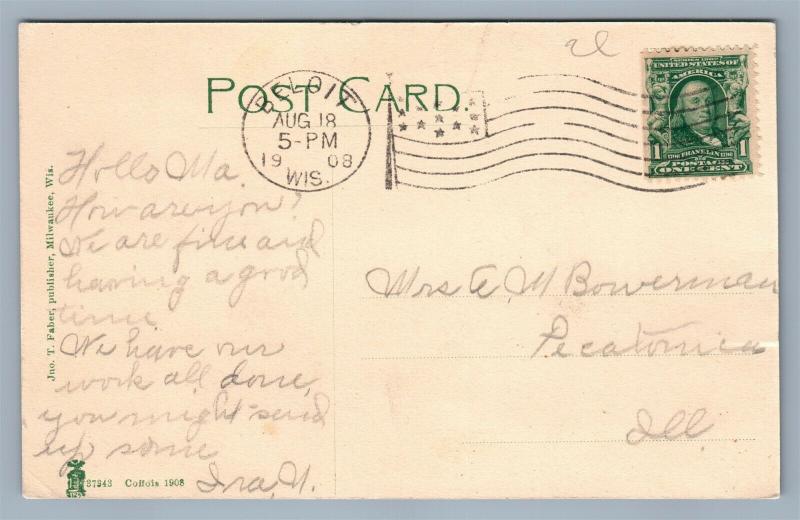 POST CARD.
BELOIT
AUG 18
5-PM
19 08
WIS.
SERIES 1902
UNITED STATES OF
AMERICA
1706 FRANKLIN 1790
1 1
POSTAGE
ONE CENT
Jno. T. Faber, publisher, Milwaukee, Wis.
Hello Ma.
How are you?
We are fine and
having a good
time
We have our
work all done,
you might send
up some
Ira, N.
Mrs E M Bowerman
Pecatonica
Ill
37343 Coffois 1908